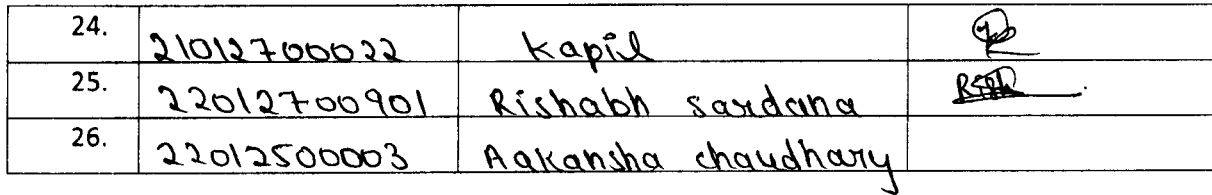 24. 21012700022 Kapil
25. 22012700901 Rishabh sardana
26. 22012500003 Aakansha chaudhary